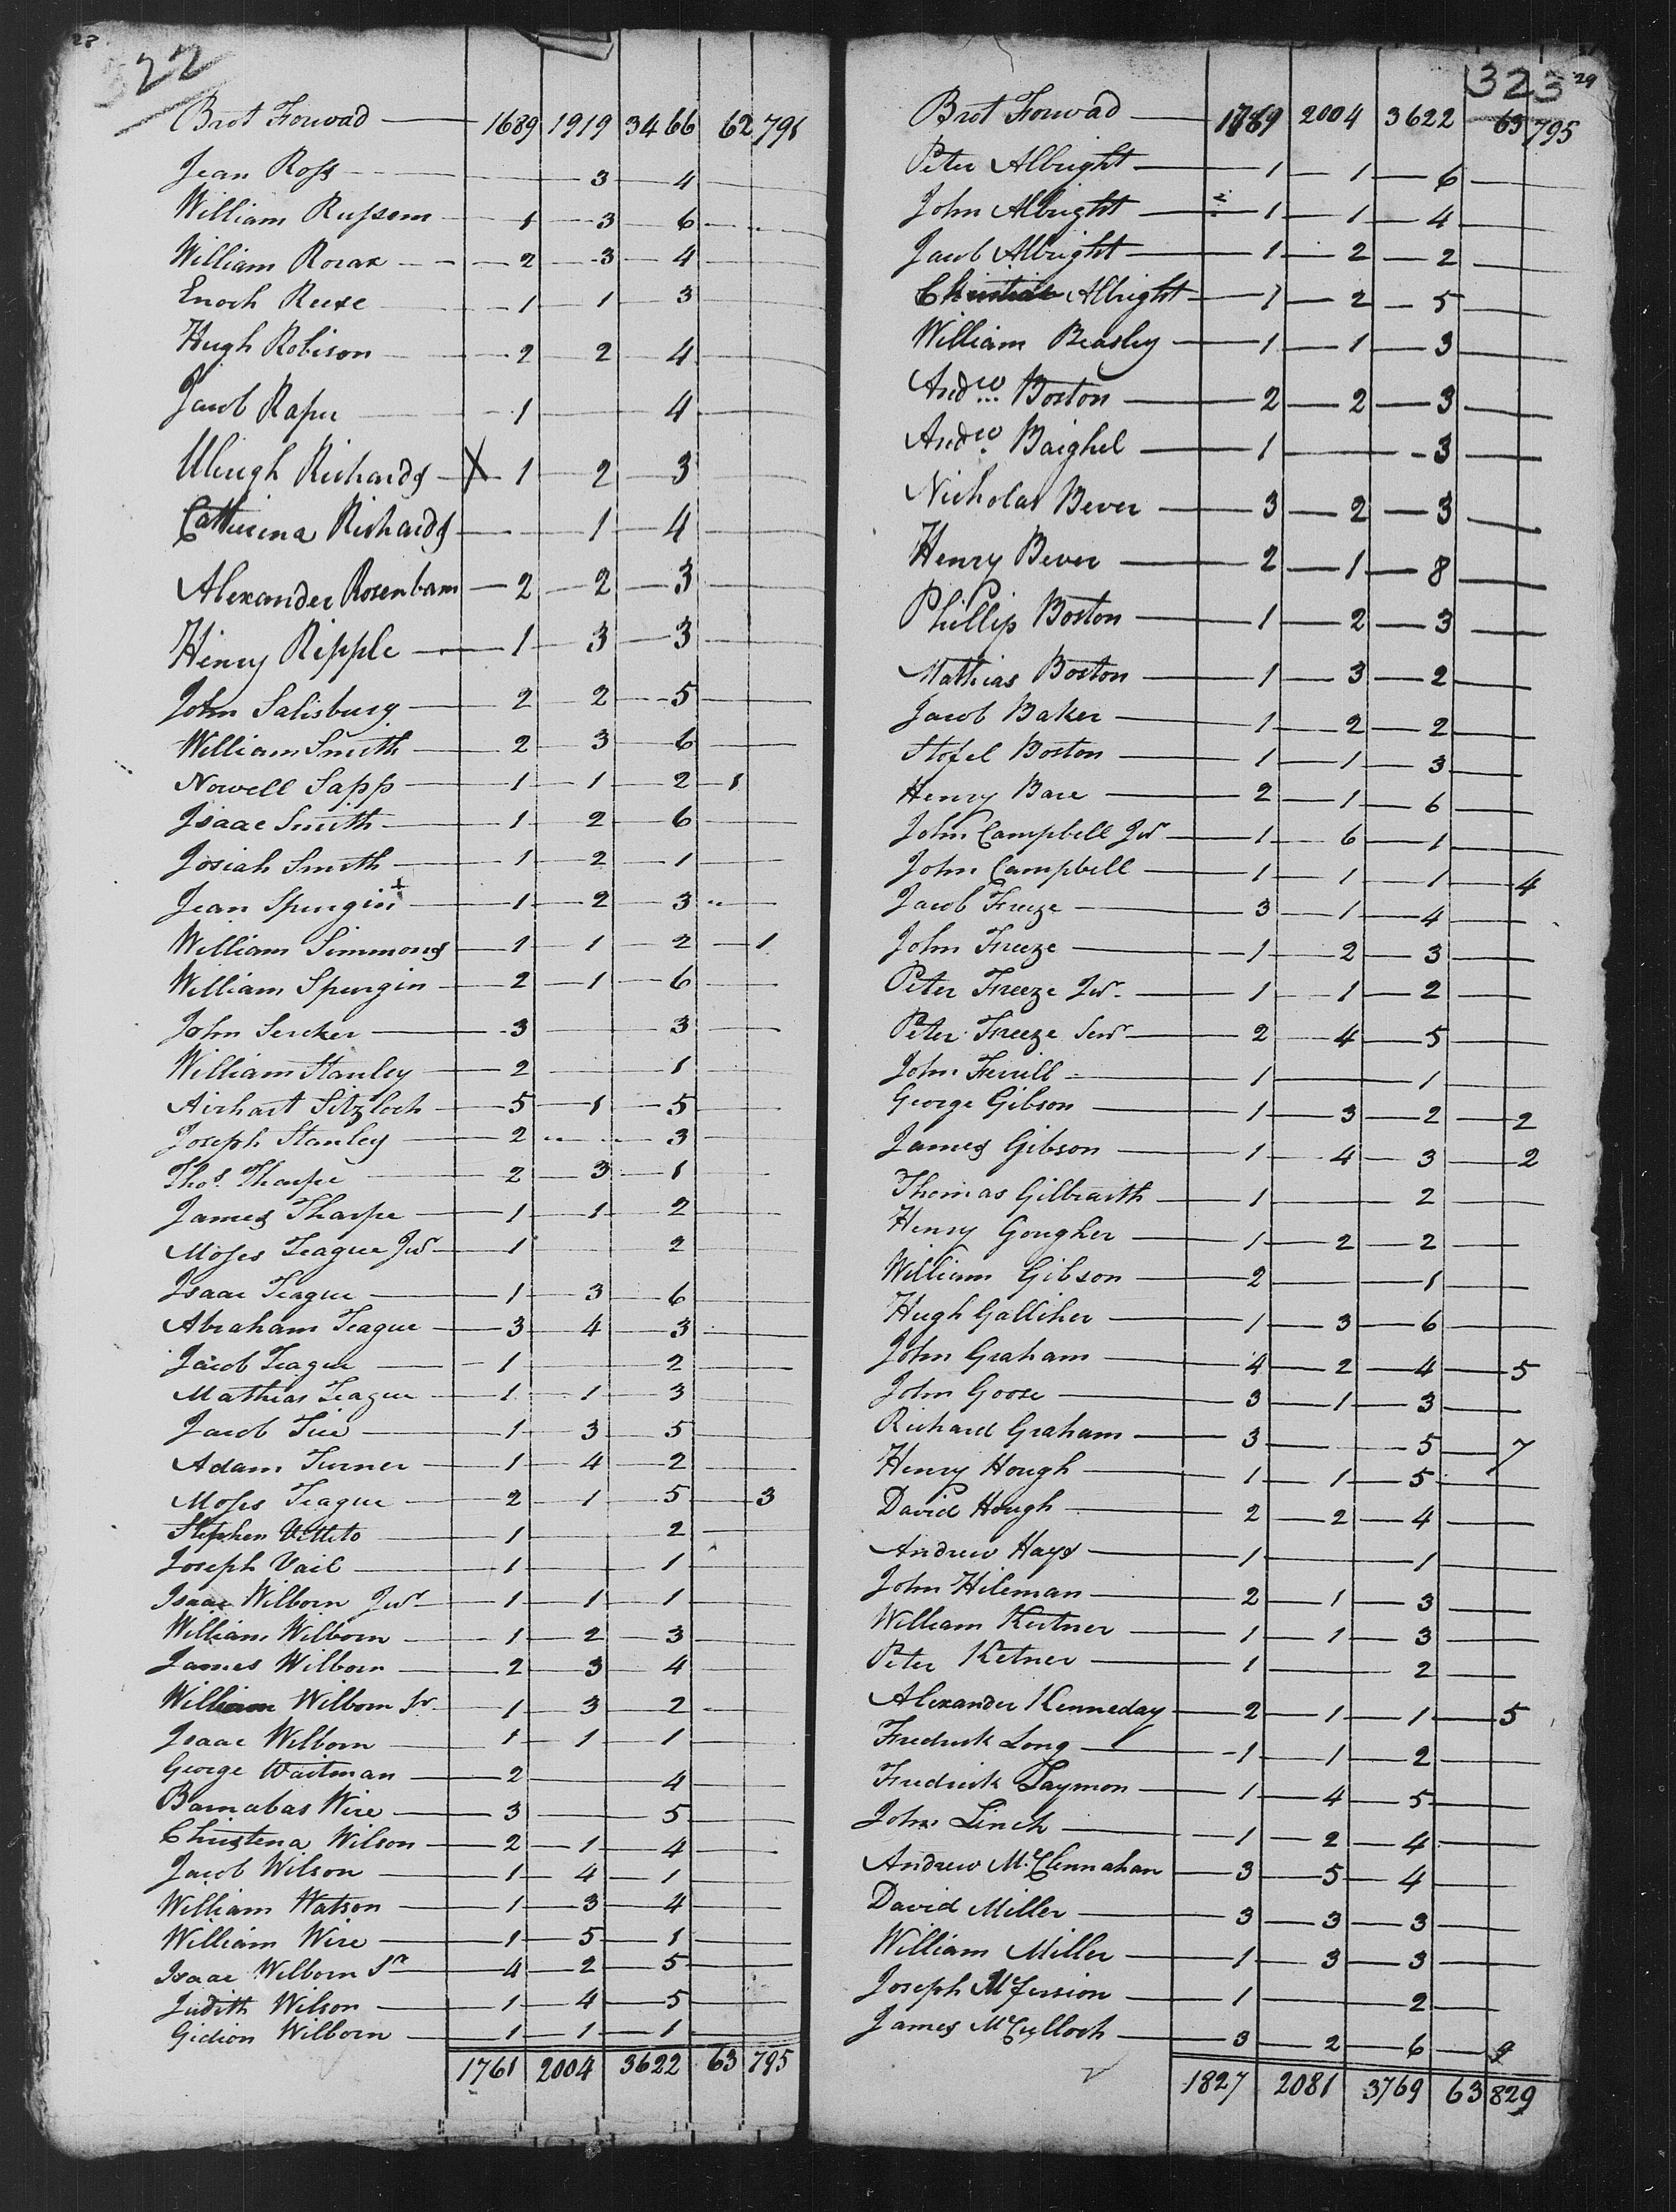 28
322
Brot Forwad 1689 1919 3466 62 791
Jean Ross 3 4
William Russom 1 3 6
William Rorax 2 3 4
Enoch Reese 1 1 3
Hugh Robison 2 2 4
Jacob Raper 1 4
Uleugh Richards X 1 2 3
Catherina Richards 1 4
Alexander Rosenbam 2 2 3
Henry Ripple 1 3 3
John Salisbury 2 2 5
William Smith 2 3 6
Nowell Sapp 1 1 2 1
Isaac Smith 1 2 6
Josiah Smith 1 2 1
Jean Spurgin 1 2 3
William Simmons 1 1 2 1
William Spurgin 2 1 6
John Sercker 3 3
William Stanley 2 1
Airhart Sitzloch 5 1 5
Joseph Stanley 2 3
Thos. Tharpe 2 3 1
James Tharpe 1 1 2
Moses Teague Jur 1 2
Isaac Teague 1 3 6
Abraham Teague 3 4 3
Jacob Teague 1 2
Mathias Teague 1 1 3
Jacob Tice 1 3 5
Adam Turner 1 4 2
Moses Teague 2 1 5 3
Stephen Vetteto 1 2
Joseph Vail 1 1
Isaac Wilborn Jur 1 1 1
William Wilborn 1 2 3
James Wilborn 2 3 4
William Wilborn Sr 1 3 2
Isaac Wilborn 1 1 1
George Waitman 2 4
Barnabas Wire 3 5
Christena Wilson 2 1 4
Jacob Wilson 1 4 1
William Watson 1 3 4
William Wire 1 5 1
Isaac Wilborn Sr 4 2 5
Judith Wilson 1 4 5
Gidion Wilborn 1 1 1
1761 2004 3622 63 795
323 29
Brot Forwad 1769 2004 3622 63 795
Peter Albright 1 1 6
John Albright 1 1 4
Jacob Albright 1 2 2
Christian Albright 1 2 5
William Beasley 1 1 3
Andw. Boston 2 2 3
Andw. Baighel 1 3
Nicholas Bever 3 2 3
Henry Bever 2 1 8
Phillip Boston 1 2 3
Mathias Boston 1 3 2
Jacob Baker 1 2 2
Stofel Boston 1 1 3
Henry Bare 2 1 6
John Campbell Jur 1 6 1
John Campbell 1 1 1 4
Jacob Freeze 3 1 4
John Freeze 1 2 3
Peter Freeze Jur. 1 1 2
Peter Freeze Senr 2 4 5
John Ferrill 1 1
George Gibson 1 3 2 2
James Gibson 1 4 3 2
Thomas Gilbraith 1 2
Henry Gougher 1 2 2
William Gibson 2 1
Hugh Galliher 1 3 6
John Graham 4 2 4 5
John Goose 3 1 3
Richard Graham 3 5 7
Henry Hough 1 1 5
David Hough 2 2 4
Andrew Hays 1 1
John Hileman 2 1 3
William Keitner 1 1 3
Peter Ketner 1 2
Alexander Kenneday 2 1 1 5
Fredrick Long 1 1 2
Fredrick Laymon 1 4 5
John Linch 1 2 4
Andrew McClennahan 3 5 4
David Miller 3 3 3
William Miller 1 3 3
Joseph Mcfersion 1 2
James McCulloch 3 2 6 9
1827 2081 3769 63 829